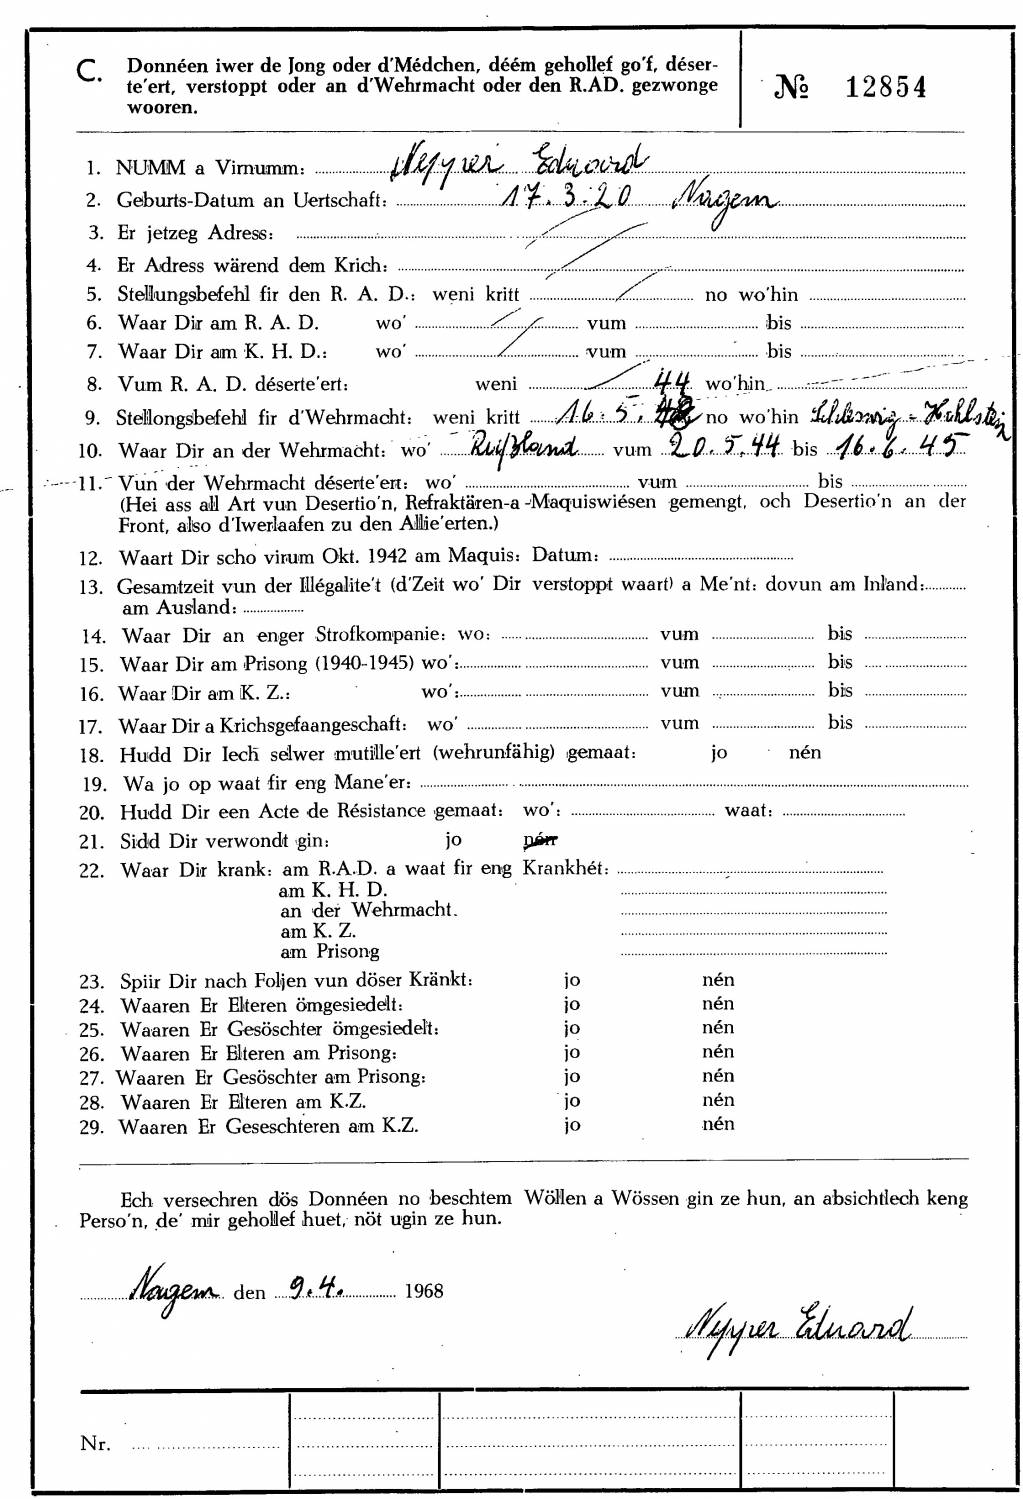 C. Donnéen iwer de Jong oder d'Médchen, déém gehollef go'f, déser-
te'ert, verstoppt oder an d'Wehrmacht oder den R.AD. gezwonge
wooren.
№ 12854
1. NUMM a Virnumm: Nepper Eduard
2. Geburts-Datum an Uertschaft: 17.3.20 Nagem
3. Er jetzeg Adress:
4. Er Adress wärend dem Krich:
5. Stellungsbefehl fir den R. A. D.: weni kritt no wo'hin
6. Waar Dir am R. A. D. wo' vum bis
7. Waar Dir am K. H. D.: wo' vum bis
8. Vum R. A. D. déserte'ert: weni 44 wo'hin
9. Stellongsbefehl fir d'Wehrmacht: weni kritt 16.5. no wo'hin Schleswig-Hohlstein
10. Waar Dir an der Wehrmacht: wo' Rußland vum 20.5.44 bis 16.6.45
11. Vun der Wehrmacht déserte'ert: wo' vum bis
(Hei ass all Art vun Desertio'n, Refraktären-a-Maquiswiésen gemengt, och Desertio'n an der
Front, also d'Iwerlaafen zu den Allie'erten.)
12. Waart Dir scho virum Okt. 1942 am Maquis: Datum:
13. Gesamtzeit vun der Illégalite't (d'Zeit wo' Dir verstoppt waart) a Me'nt: dovun am Inland:
am Ausland:
14. Waar Dir an enger Strofkompanie: wo: vum bis
15. Waar Dir am Prisong (1940-1945) wo': vum bis
16. Waar Dir am K. Z.: wo': vum bis
17. Waar Dir a Krichsgefaangeschaft: wo' vum bis
18. Hudd Dir Iech selwer mutille'ert (wehrunfähig) gemaat: jo nén
19. Wa jo op waat fir eng Mane'er:
20. Hudd Dir een Acte de Résistance gemaat: wo': waat:
21. Sidd Dir verwondt gin: jo nén
22. Waar Dir krank: am R.A.D. a waat fir eng Krankhét:
am K. H. D.
an der Wehrmacht.
am K. Z.
am Prisong
23. Spiir Dir nach Foljen vun döser Kränkt: jo nén
24. Waaren Er Elteren ömgesiedelt: jo nén
25. Waaren Er Gesöschter ömgesiedelt: jo nén
26. Waaren Er Elteren am Prisong: jo nén
27. Waaren Er Gesöschter am Prisong: jo nén
28. Waaren Er Elteren am K.Z. jo nén
29. Waaren Er Geseschteren am K.Z. jo nén
Ech versechren dös Donnéen no beschtem Wöllen a Wössen gin ze hun, an absichtlech keng
Perso'n, de' mir gehollef huet, nöt ugin ze hun.
Nagem den 9.4. 1968
Nepper Eduard
Nr.